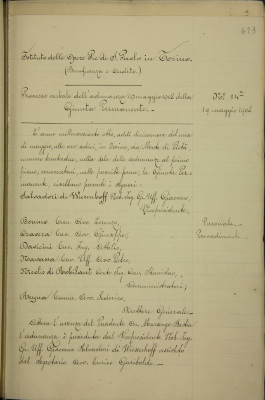 3
623
Istituto delle Opere Pie di S. Paolo in Torino.
(Beneficenza e Credito.)
Processo verbale dell'adunanza 19 maggio 1908 della
Giunta Permanente.
N.° 14°
19 maggio 1908
L'anno millenovecento otto, addì diciannove del mese
di maggio, alle ore sedici, in Torino, via Monte di Pietà
numero trentadue, nella sala delle adunanze al primo
piano, convocatasi, nelle prescritte forme, la Giunta Per-
manente, risultano presenti i Signori:
Salvadori di Wiesenhoff Nob. Ing. Gr. Uff. Giacomo,
Vicepresidente;
Bonino Cav. Avv. Lorenzo,
Cravera Cav. Avv. Giuseppe,
Davicini Cav. Ing. Attilio,
Ravenna Cav. Uff. Avv.
Nicolis di Robilant Conte Ing. Cav. Stanislao,
Amministratori;
Avv. Federico,
Direttore Generale.
Attesa l'assenza del Presidente
l'adunanza è presieduta dal Vicepresidente Nob. Ing.
Gr. Uff. Giacomo Salvadori di Wiesenhoff assistito
dal Segretario Avv. Enrico Garibaldi.
Personale.
Provvedimenti.